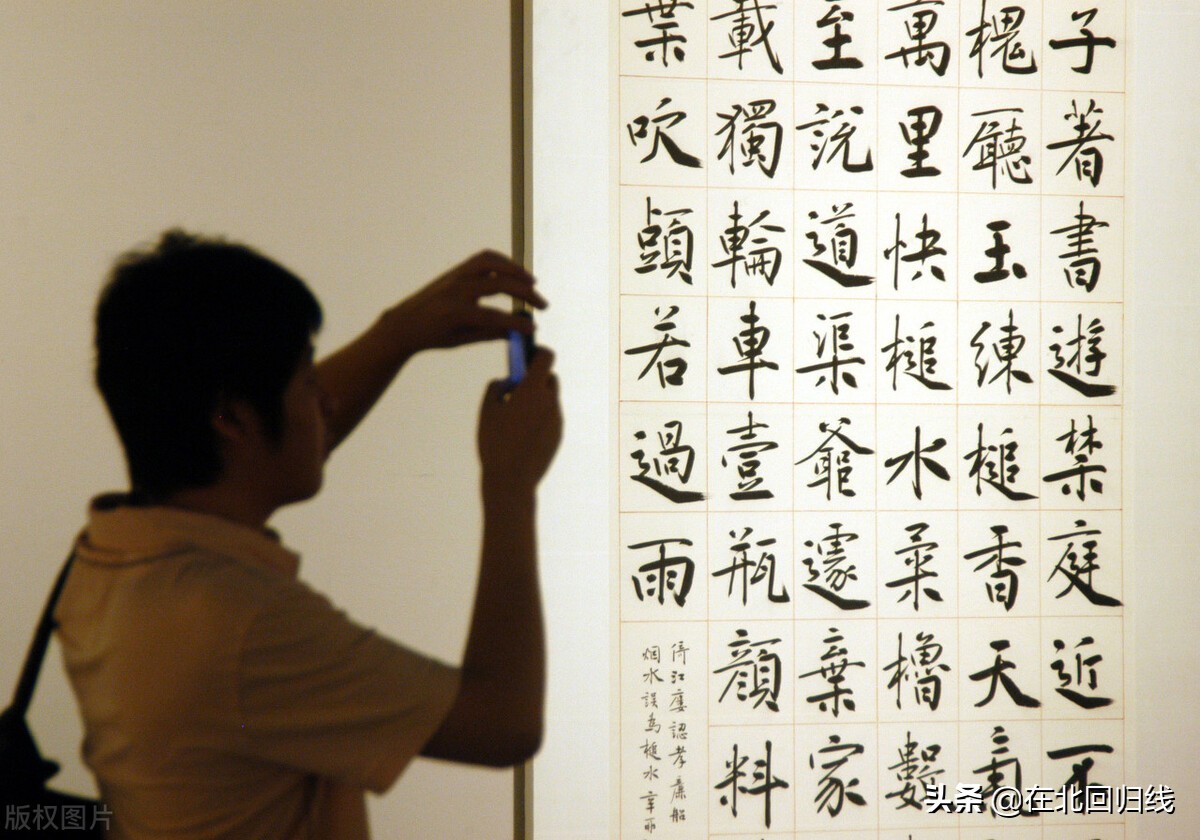 子著書遊禁庭近不
槐廳玉練槌香天氣
萬里快槌水櫓
至說道渠爺遽棄家
載獨輪車壹瓶顏料
葉吹若過雨
倚江廔認孝廉船
烟水誤為槌水辛
头条 @在北回归线
版权图片